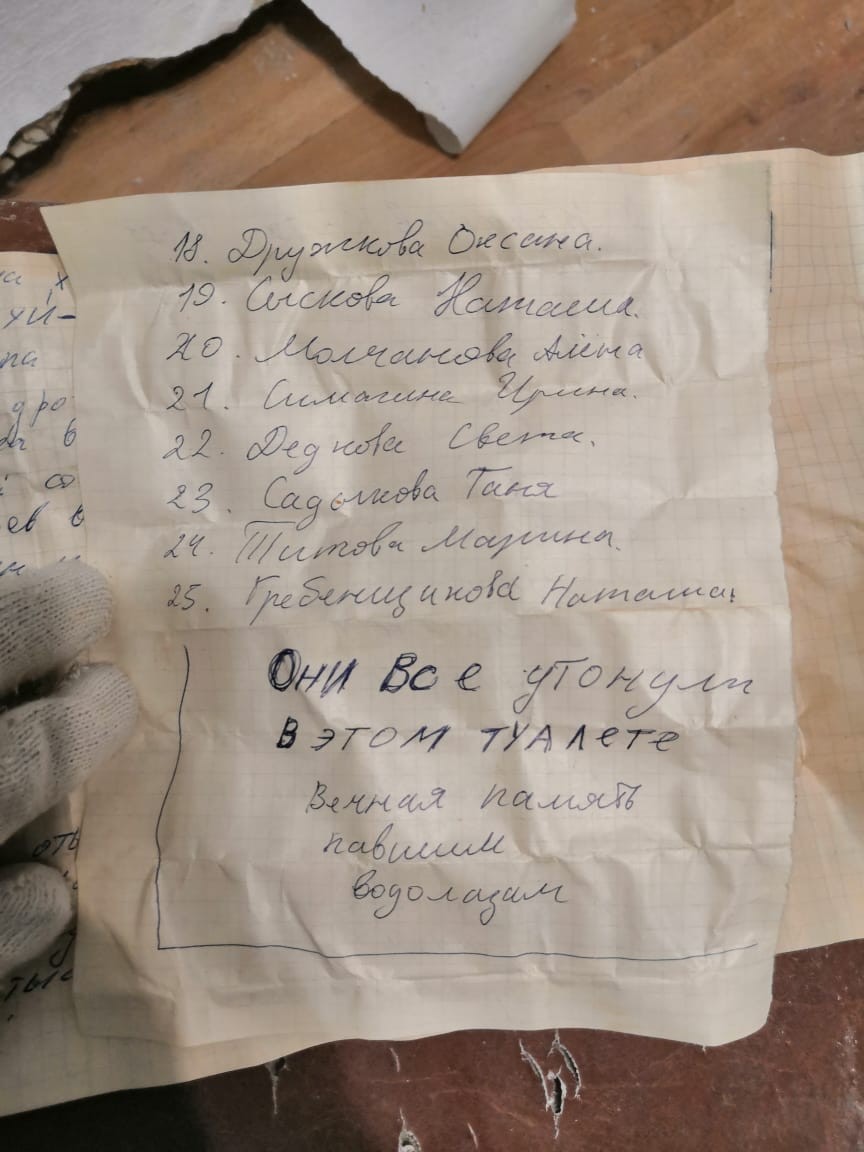 18. Дружкова Оксана.
19. Сыскова Наташа.
20. Молчанова Алёна
21. Симагина Ирина.
22. Дедкова Света.
23. Садыкова Таня
24. Титова Марина.
25. Гребенщикова Наташа.
Они все утонули
в этом туалете
Вечная память
павшим
водолазам